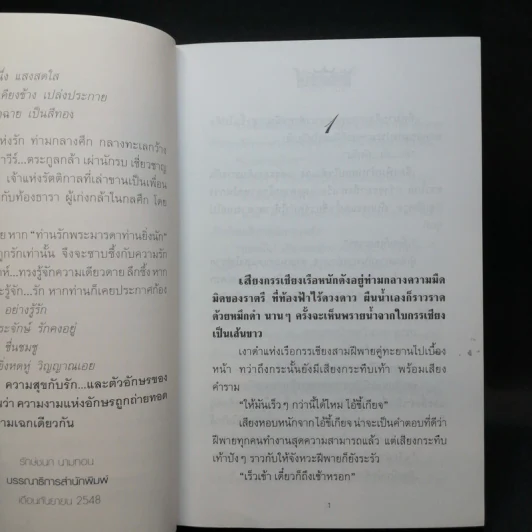 นึ่ง แสงสดใส
คียงข้าง เปล่งประกาย
ฉาย เป็นสีทอง
ห่งรัก ท่ามกลางศึก กลางทะเลกว้าง
าวีร์...ตระกูลกล้า เผ่านักรบ เชี่ยวชาญ
เจ้าแห่งรัตติกาลที่เล่าขานเป็นเพื่อน
กับท้องธารา ผู้เก่งกล้าในกลศึก โดย
ย หาก "ท่านรักพระมารดาท่านยิ่งนัก"
ถูกรักเท่านั้น จึงจะซาบซึ้งกับความรัก
ห์...ทรงรู้จักความเดียวดาย ลึกซึ้ง หาก
ะรู้จัก...รัก หากท่านก็เคยประกาศก้อง
อย่างรู้รัก
ระจักษ์ รักคงอยู่
ชื่นชมชู
ยิ่งหดหู่ วิญญาณเอย
ความสุขกับรัก...และตัวอักษรของ
นว่า ความงามแห่งอักษรถูกถ่ายทอด
ามเฉกเดียวกัน
รักษ์ชนก นามทอน
บรรณาธิการสำนักพิมพ์
เดือนกันยายน 2548
1
เสียงกรรเชียงเรือหนักดังอยู่ท่ามกลางความมืด
มิดของราตรี ที่ท้องฟ้าไร้ดวงดาว ผืนน้ำเองก็ราวราด
ด้วยหมึกดำ นานๆ ครั้งจะเห็นพรายน้ำจากใบกรรเชียง
เป็นเส้นขาว
เงาดำแห่งเรือกรรเชียงสามฝีพายคู่ทะยานไปเบื้อง
หน้า ทว่าถึงกระนั้นยังมีเสียงกระทืบเท้า พร้อมเสียง
คำราม
"ให้มันเร็วๆ กว่านี้ได้ไหม ไอ้ขี้เกียจ"
เสียงหอบหนักจากไอ้ขี้เกียจ น่าจะเป็นคำตอบที่ดีว่า
ฝีพายทุกคนทำงานสุดความสามารถแล้ว แต่เสียงกระทืบ
เท้าปังๆ ราวกับให้จังหวะฝีพายก็ยังระรัว
"เร็วเข้า เดี๋ยวก็ถึงเช้าหรอก"
1